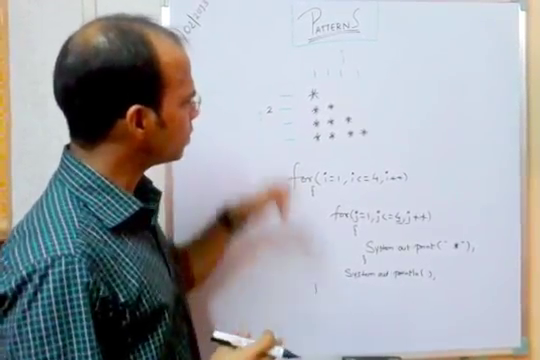 02/2013
PATTERNS
j
1 1 1 1
*
2 * *
* * *
* * * *
for(i=1,i<=4,i++)
{
for(j=1,j<=4,j++)
{
System out print(" *"),
}
System out println(),
}